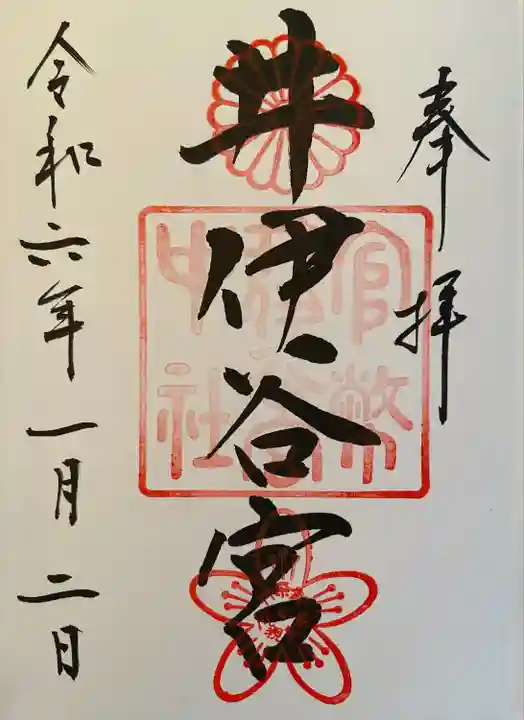 奉拝
井伊谷宮
官幣
中社
令和六年一月二日